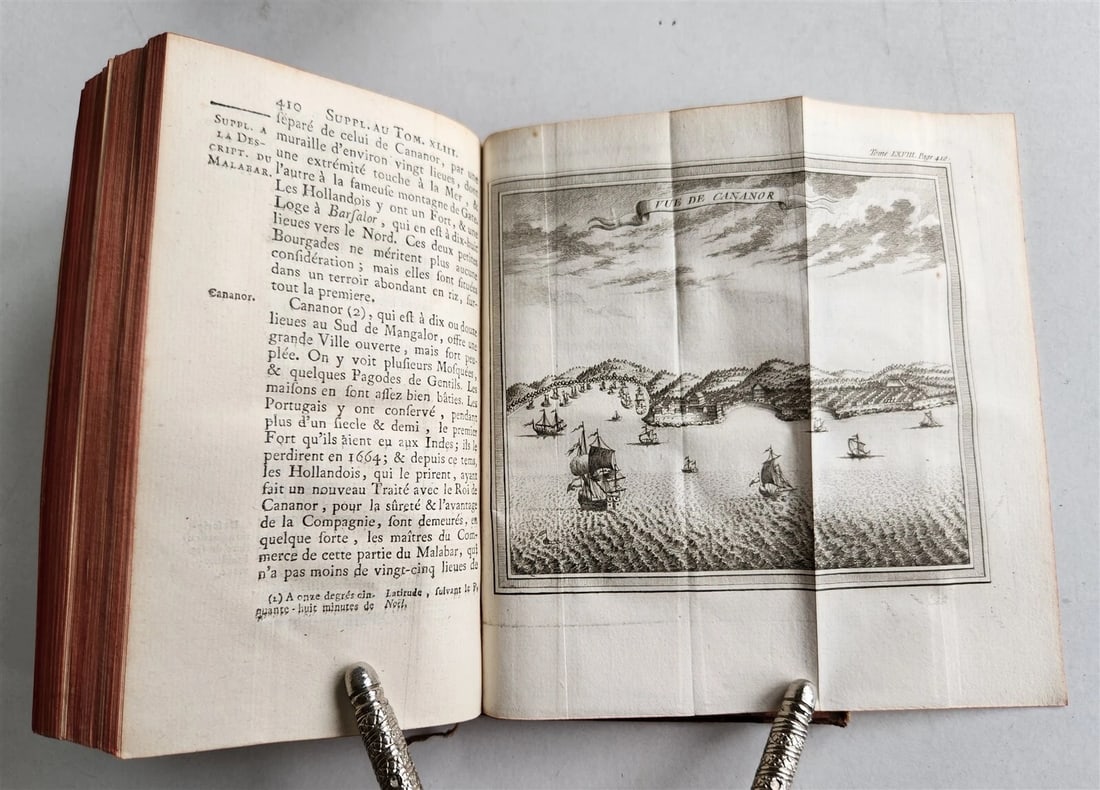 410 SUPPL. AU TOM. XLIII.
SUPPL. A
LA DES-
CRIPT. DU
MALABAR.
ſéparé de celui de Cananor, par une
muraille d'environ vingt lieues, dont
une extrémité touche à la Mer, &
l'autre à la fameuſe montagne de
Les Hollandois y ont un Fort, & une
Loge à Barſalor, qui en eſt à dix-huit
lieues vers le Nord. Ces deux petites
Bourgades ne méritent plus aucune
conſidération; mais elles ſont ſituées
dans un terroir abondant en riz, ſur-
tout la premiere.
Cananor.
Cananor (2), qui eſt à dix ou douze
lieues au Sud de Mangalor, offre une
grande Ville ouverte, mais fort peu-
plée. On y voit pluſieurs Moſquées,
& quelques Pagodes de Gentils. Les
maiſons en ſont aſſez bien bâties. Les
Portugais y ont conſervé, pendant
plus d'un ſiecle & demi, le premier
Fort qu'ils aient eu aux Indes; ils le
perdirent en 1664; & depuis ce tems,
les Hollandois, qui le prirent, ayant
fait un nouveau Traité avec le Roi de
Cananor, pour la sûreté & l'avantage
de la Compagnie, ſont demeurés, en
quelque ſorte, les maîtres du Com-
merce de cette partie du Malabar, qui
n'a pas moins de vingt-cinq lieues de
(1) A onze degrés cin- Latitude, ſuivant le P.
quante-huit minutes de Noël,
Tome LXVIII. Page 410.
VUE DE CANANOR